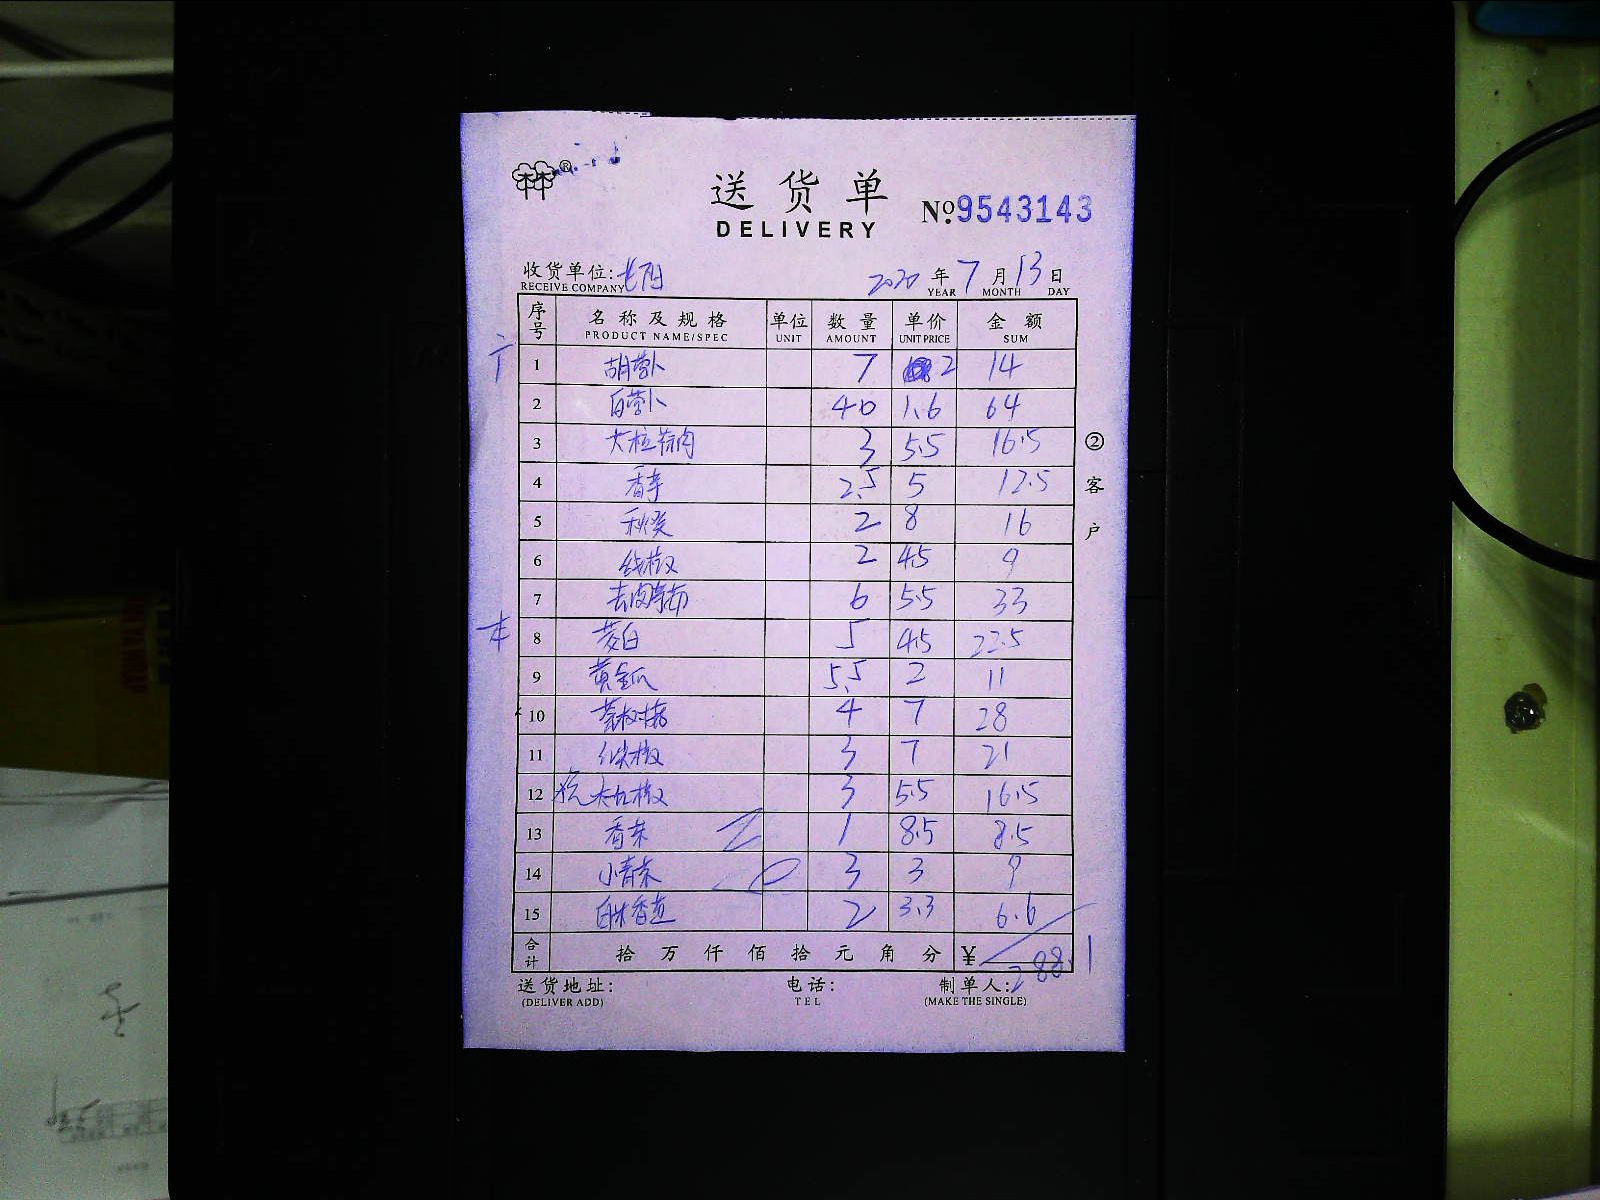 送货单
DELIVERY
№ 9543143
收货单位:
RECEIVE COMPANY
2020 年 7 月 13 日
YEAR MONTH DAY
序号 名称及规格 单位 数量 单价 金额
PRODUCT NAME/SPEC UNIT AMOUNT UNIT PRICE SUM
1 胡萝卜 7 2 14
2 白萝卜 40 1.6 64
3 大粒蒜肉 3 5.5 16.5
4 香芋 2.5 5 12.5
5 秋葵 2 8 16
6 线椒 2 4.5 9
7 去皮莴 6 5.5 33
8 茭白 5 4.5 22.5
9 黄金瓜 5.5 2 11
10 茶树菇 4 7 28
11 椒 3 7 21
12 椒 3 5.5 16.5
13 香菜 1 8.5 8.5
14 小青菜 3 3 9
15 白 香 2 3.3 6.6
合计 拾 万 仟 佰 拾 元 角 分 ¥ 288.1
送货地址: 电话: 制单人:
(DELIVER ADD) TEL (MAKE THE SINGLE)
② 客户